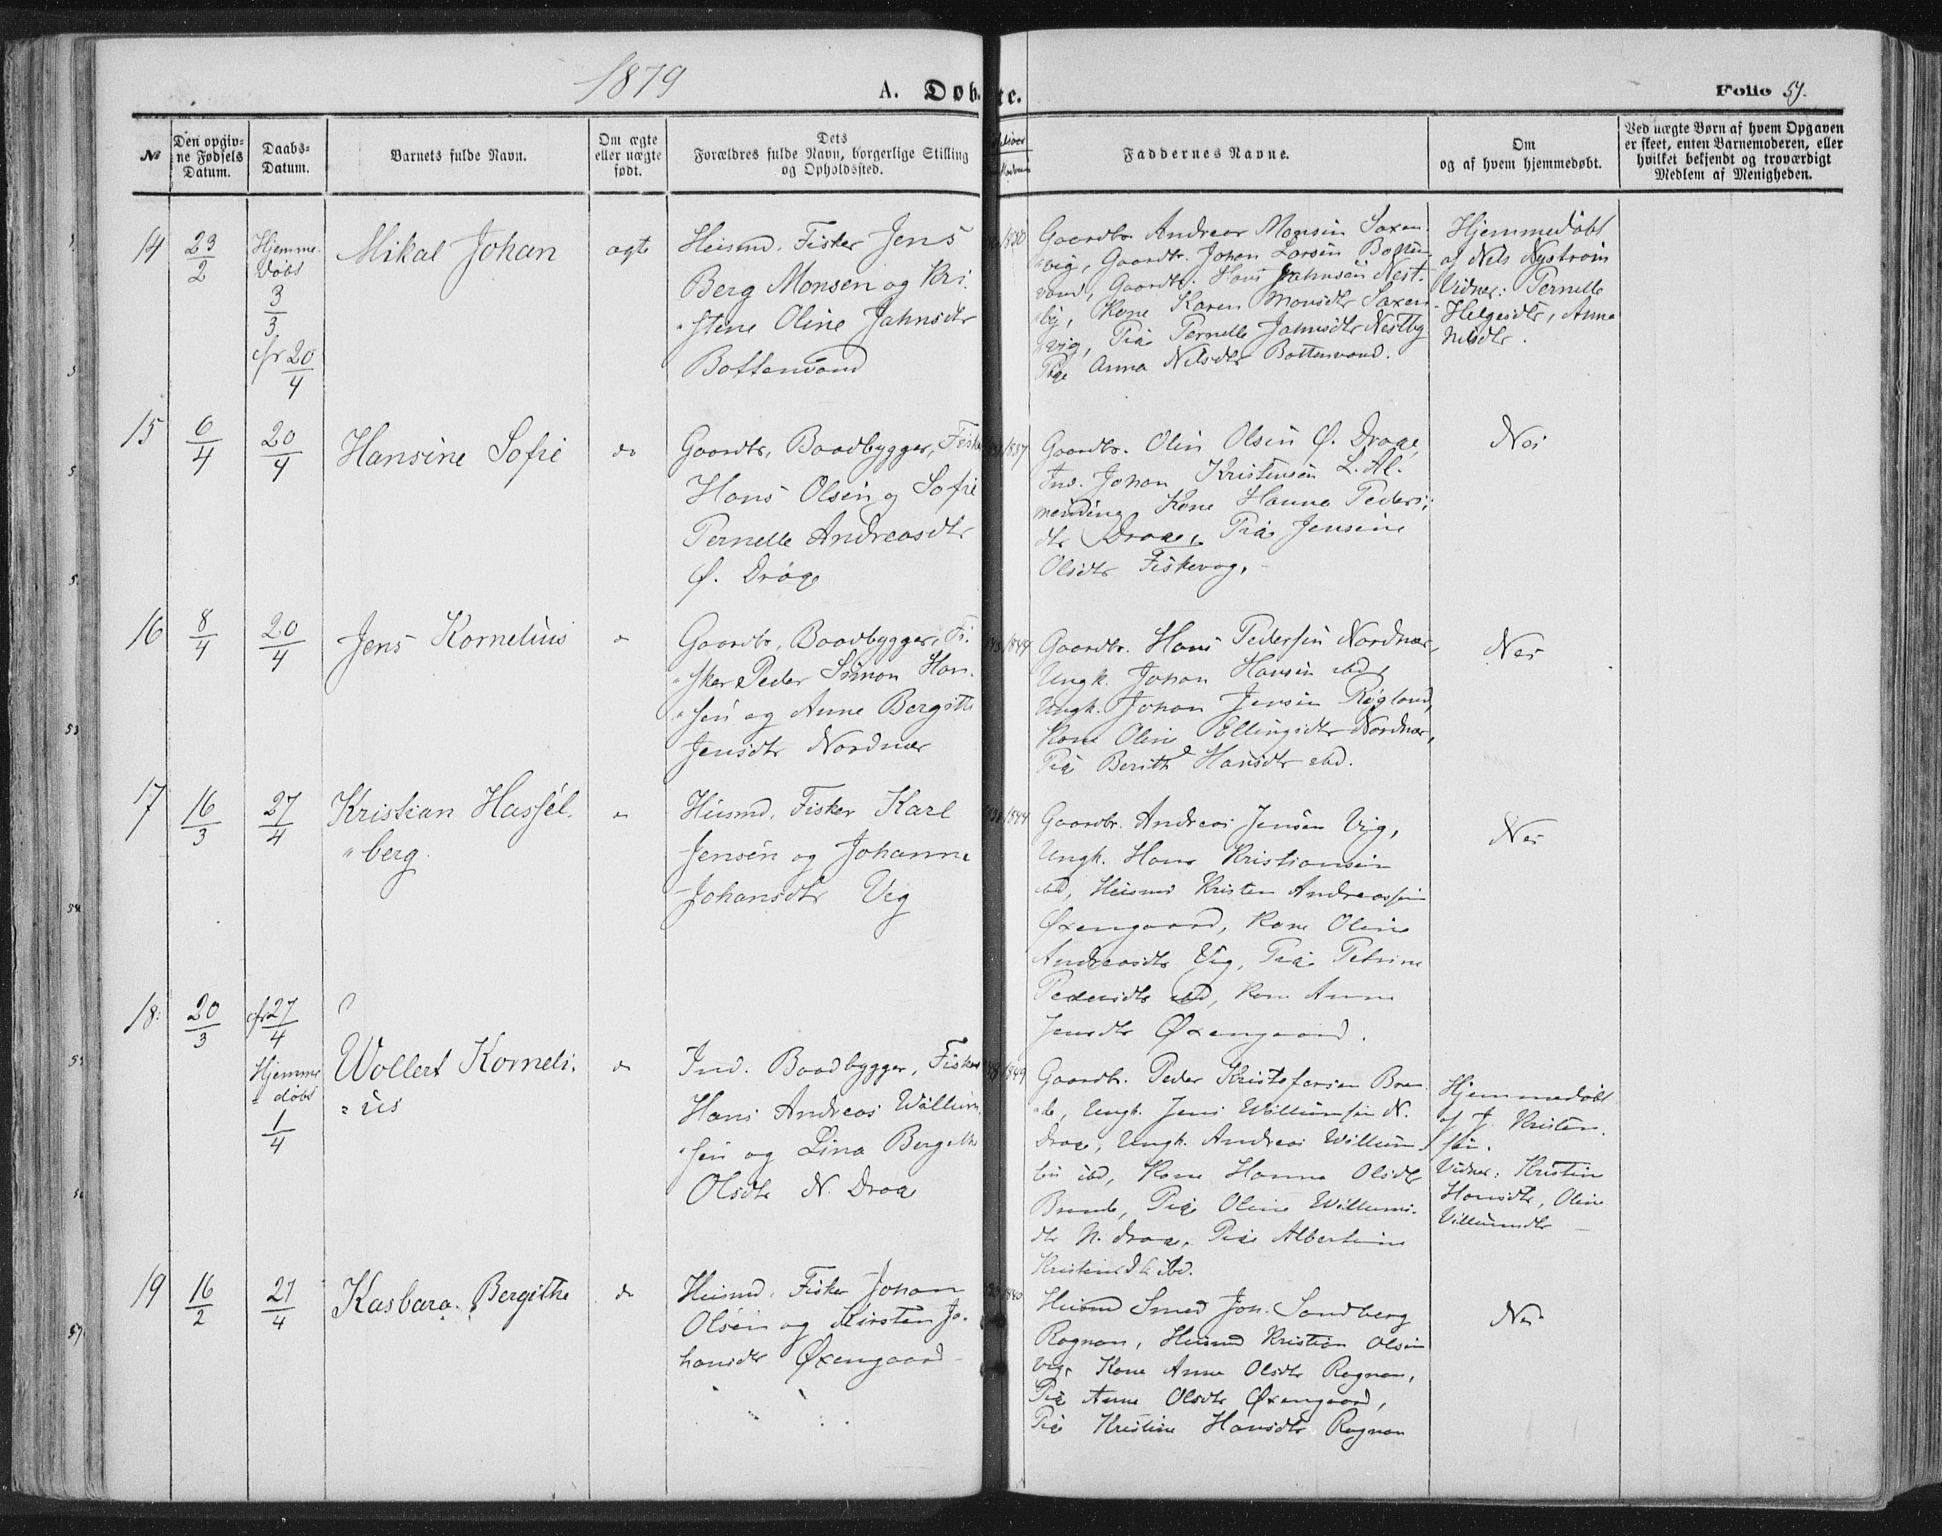 1879
A. Døbte.
Folio 57.
No
Den opgiv-
ne Fødsels
Datum.
Daabs-
Datum.
Barnets fulde Navn.
Om ægte
eller uægte
født.
Dets
Forældres fulde Navn, borgerlige Stilling
og Opholdssted.
Faddernes Navne.
Om
og af hvem hjemmedøbt.
Ved uægte Børn af hvem Opgaven
er skeet, enten Barnemoderen, eller
hvilket bekjendt og troværdigt
Medlem af Menigheden.
14
23/2
Hjemme
døbt
3/3
cfr 20/4
Mikal Johan
ægte
Huusmd. Fisker Jens
Berg Monsen og Kri-
stene Oline Jahnsdtr
Bottenvand
1850
Gaardbr. Andreas Monsen Saxen-
vig, Gaardbr. Johan Larsen Botten-
vand, Gaardbr. Hans Jahnsen Nest-
by, Kone Karen Monsdtr Saxen-
vig, Pige Pernelle Jahnsdtr Nestby
Pige Anna Nilsdtr Bottenvand.
Hjemmedøbt
af Nils Nystrøm
Vidner: Pernelle
Helgesdtr, Anna
Nilsdtr.
15
6/4
20/4
Hansine Sofie
do
Gaardbr, Baadbygger, Fisker
Hans Olsen og Sofie
Pernelle Andreasdtr
Ø. Drage
1837
Gaardbr. Olin Olsen Ø. Drage,
Ind. Johan Kristensen L. Al-
mending, Kone Hanna Peders-
dtr Drage, Pige Jensine
Olsdtr Fiskevag.
Nei
16
8/4
20/4
Jens Kornelius
do
Gaardbr, Baadbygger, Fi-
sker Peder Simon Han-
sen og Anne Bergitte
Jensdtr Nordnæs
1844
Gaardbr. Hans Pedersen Nordnæs,
Ungk. Johan Hansen ibd,
Ungk. Johan Jensen Røgland,
Kone Oline Ellingsdtr Nordnæs,
Pige Berith Hansdtr ibd.
Nei
17
16/3
27/4
Kristian Hassel-
berg.
do
Huusmd. Fisker Karl
Jensen og Johanna
Johansdtr Vig
1844
Gaardbr. Andreas Jensen Vig,
Ungk. Hans Kristiansen
ibd, Huusmd Kristen Andreassen
Øxengaard, Kone Oline
Andreasdtr Vig, Pige Petrine
Pedersdtr ibd, Kone Anne
Jensdtr Øxengaard.
Nei
18.
20/3
cfr 27/4
Hjemme
døbt
1/4
Wollert Korneli-
us
do
Ind. Baadbygger, Fisker
Hans Andreas Willum-
sen og Lina Bergithe
Olsdtr N. Drage
1849
Gaardbr. Peder Kristofersen Bren-
de, Ungk. Jens Willumsen N.
Drage, Ungk. Andreas Willum-
sen ibd, Kone Hanna Olsdtr
Brende, Pige Oline Willums-
dtr N. Drage, Pige Albertine
Kristensdtr ibd.
Hjemmedøbt
af J. Kristen-
sen.
Vidner: Kristin
Hansdtr, Oline
Villumsdtr
19
16/2
27/4
Kasbara Bergithe
do
Huusmd. Fisker Johan
Olsen og Kirsten Jo-
hansdtr Øxengaard
1840
Huusmd Smed Joh. Sandberg
Rognan, Huusmd Kristian Olsen
Vig, Kone Anne Olsdtr Rognan,
Pige Anne Olsdtr Øxengaard,
Pige Kristine Hansdtr Rognan
Nei